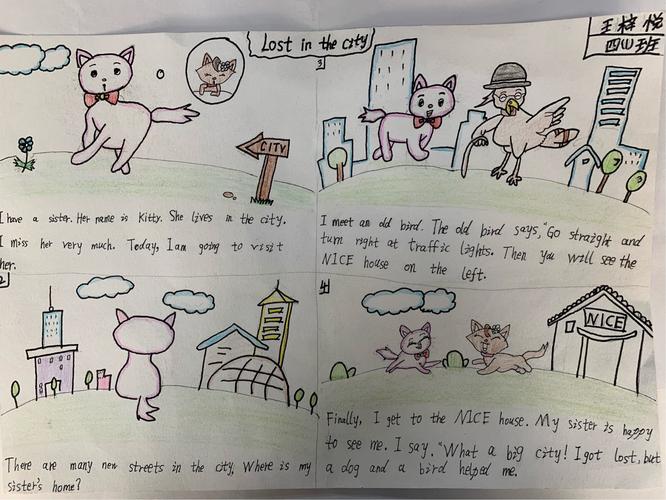 Lost in the city
王梓悦
四(1)班
CITY
I have a sister. Her name is Kitty. She lives in the city.
I miss her very much. Today, I am going to visit
her.
2
There are many new streets in the city, Where is my
sister's home?
3
I meet an old bird. The old bird says, "Go straight and
turn right at traffic lights. Then you will see the
NICE house on the left.
4
NICE
Finally, I get to the NICE house. My sister is happy
to see me. I say. "What a big city! I got lost, but
a dog and a bird helped me.